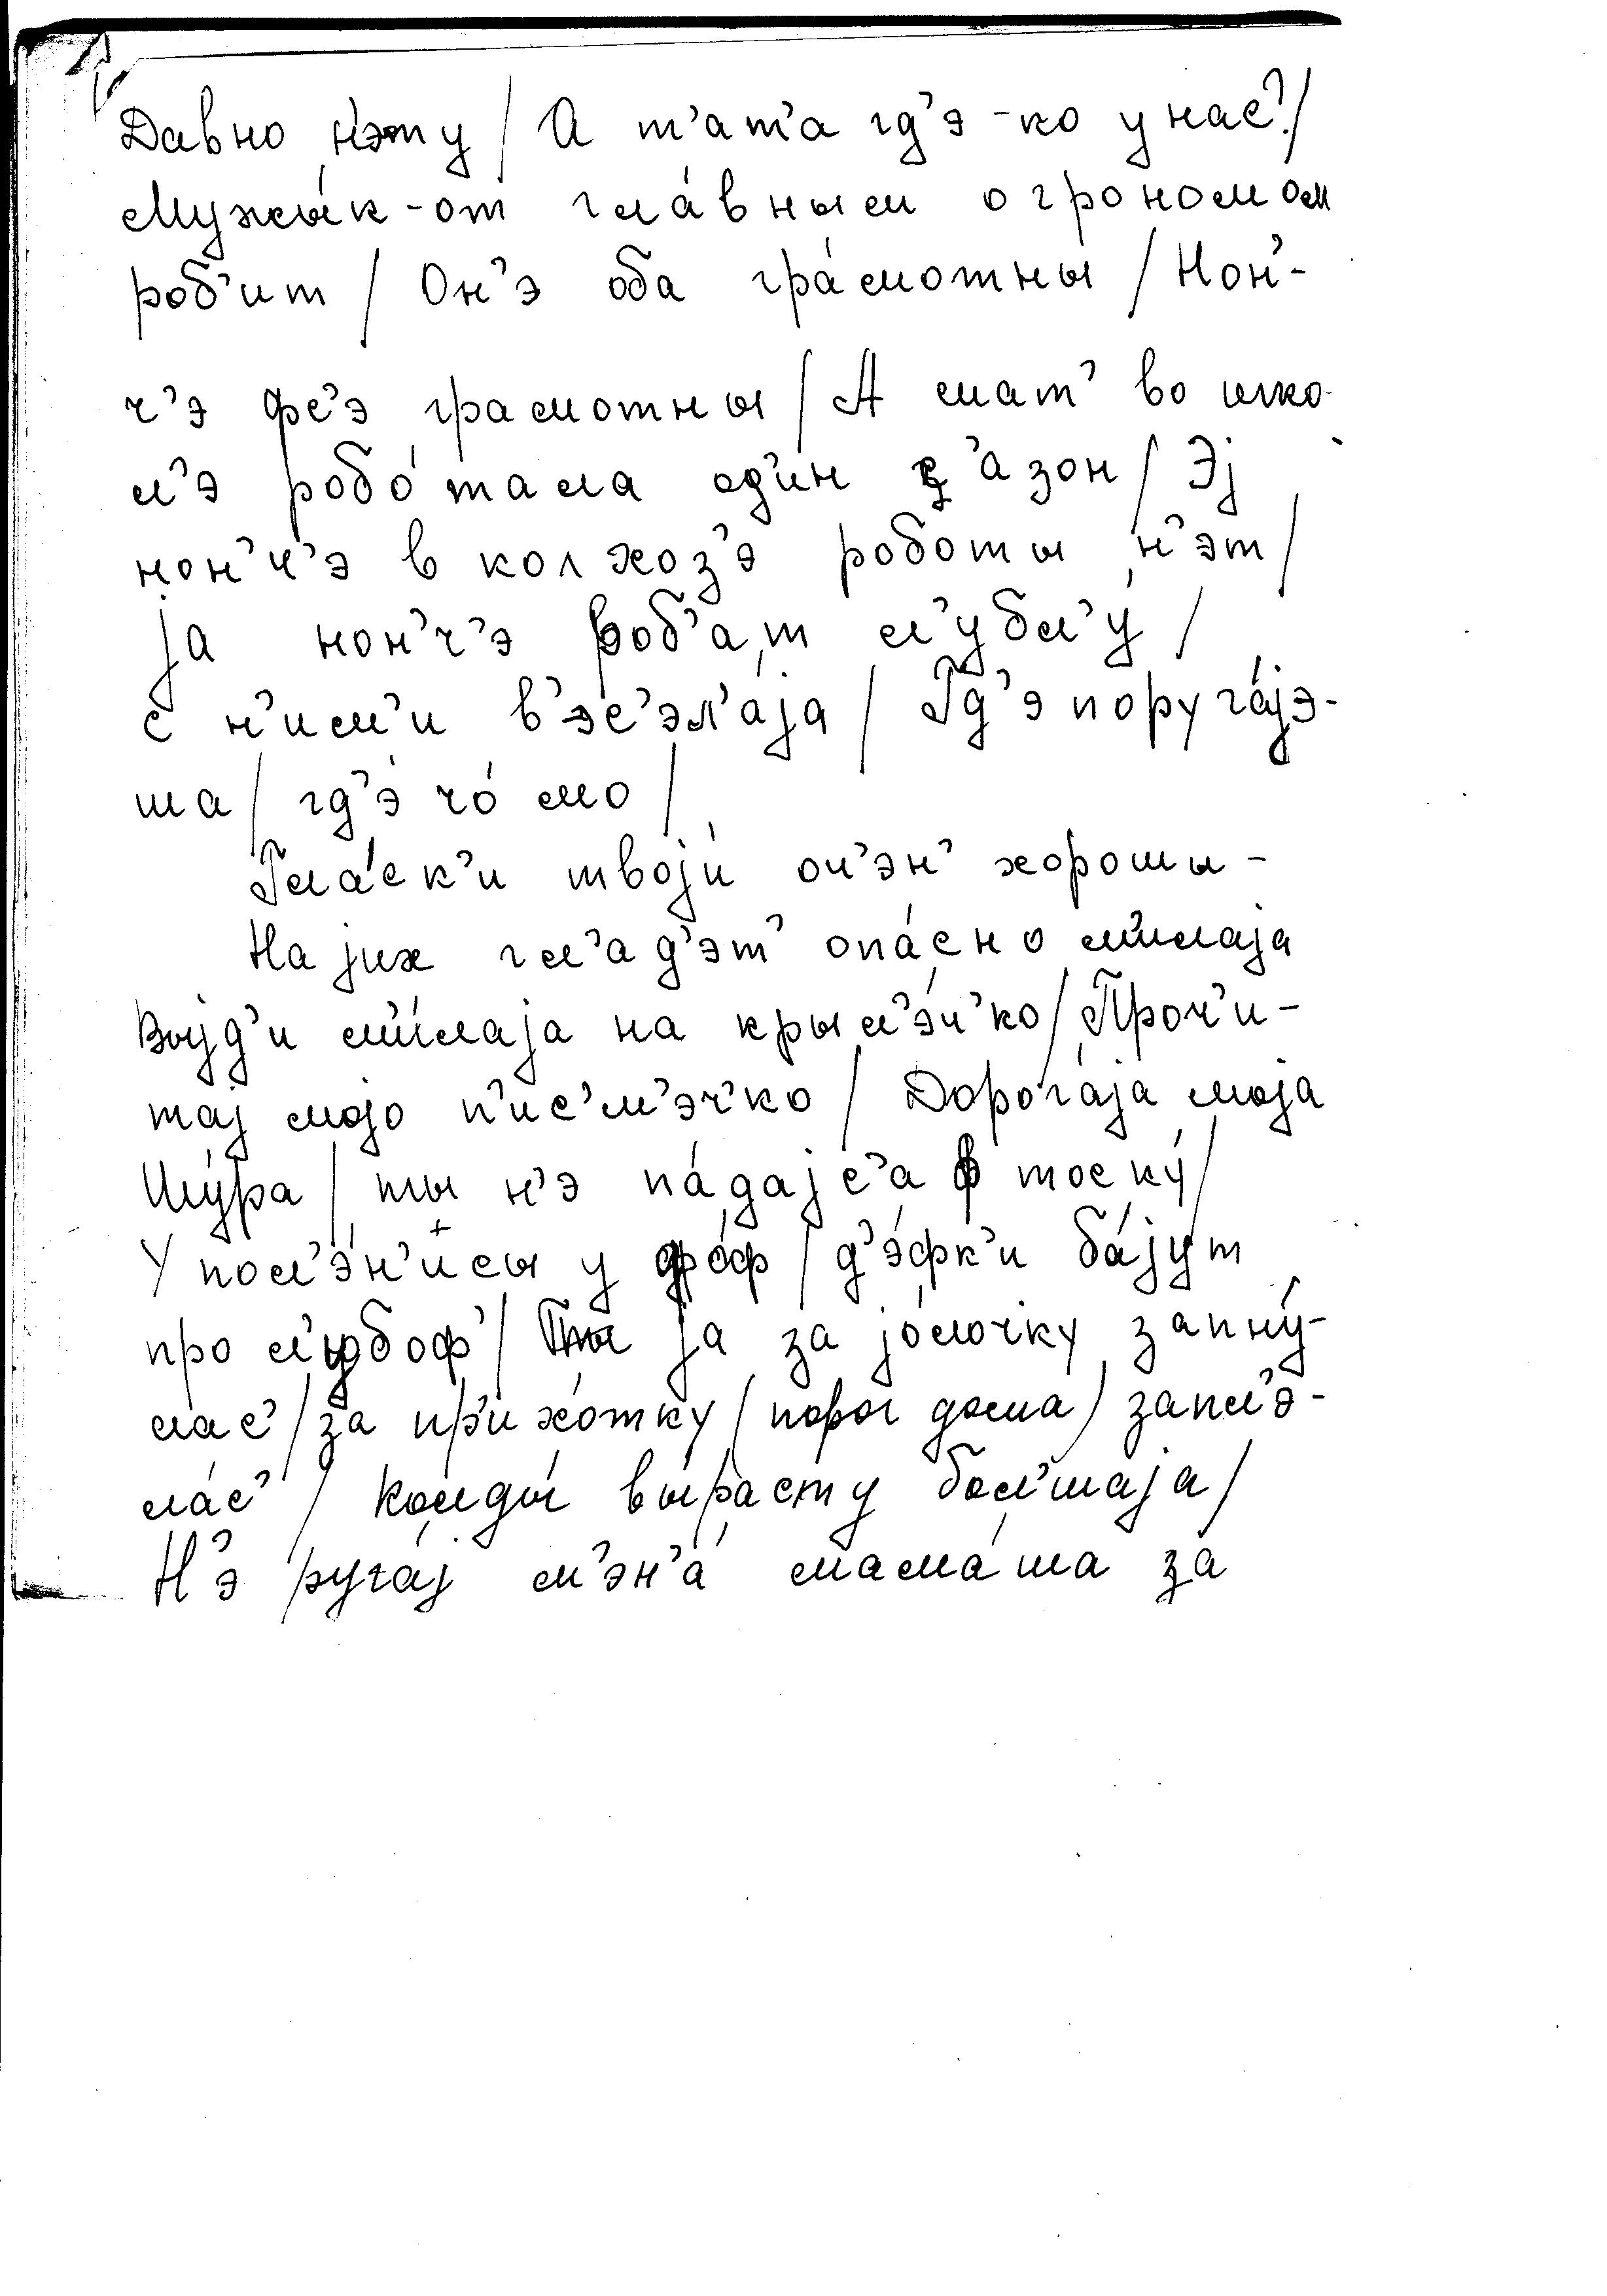 Давно н'эту / А т'ат'а гд'э-ко у нас? /
Мужы́к-от гла́вным огрономом
роб'ит / Он'э оба гра́мотны / Нон'-
ч'э фс'э грамотны / А мат' во шко-
л'э робо́тала од'и́н с'азон / Эј
нон'ч'э в колхоз'э роботы н'эт /
ја нон'ч'э роб'ат л'убл'у́ /
с н'им'и в'эс'эл'а́ја / Гд'э поруга́јэ-
ша / гд'э́ чо́ мо /
Гла́ск'и твоји́ оч'эн' хорошы -
На јих гл'ад'эт' опа́сно м'и́лаја
Выјд'и м'и́лаја на крыл'э́ч'ко / Проч'и-
тај мојо п'ис'м'эч'ко / Дорога́ја моја
Шу́ра / ты н'э па́дајс'а ф тоску́ /
У пол'э́н'и́сы у дро́ф / д'э́фк'и ба́јут
про л'убоф' / ја за јо́лочку запну́-
лас' / за пр'ихо́тку / порог дома / запл'э-
ла́с' / Колды́ вы́расту бол'шаја /
Н'э руга́ј м'эн'а́ мама́ша за